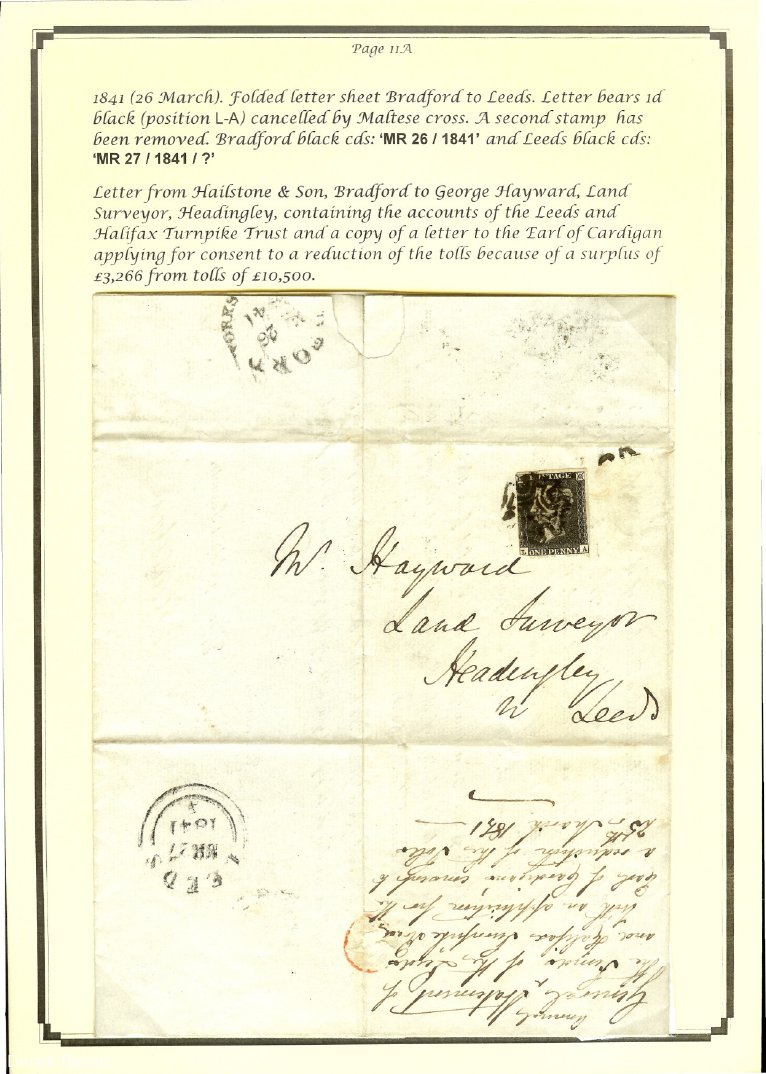 Page 11A
1841 (26 March). Folded letter sheet Bradford to Leeds. Letter bears 1d
black (position L-A) cancelled by Maltese cross. A second stamp has
been removed. Bradford black cds: ‘MR 26 / 1841’ and Leeds black cds:
‘MR 27 / 1841 / ?’
Letter from Hailstone & Son, Bradford to George Hayward, Land
Surveyor, Headingley, containing the accounts of the Leeds and
Halifax Turnpike Trust and a copy of a letter to the Earl of Cardigan
applying for consent to a reduction of the tolls because of a surplus of
£3,266 from tolls of £10,500.
YORKS
26
41
POSTAGE
L ONE PENNY A
Mr. Hayward
Land Surveyor
Headingley
n Leeds
LEEDS
MR 27
1841
General Statement of
the Funds of the Leeds
and Halifax Turnpike Road
with an application from the
Earl of Cardigans consent to
a reduction of the Tolls
25th March 1841